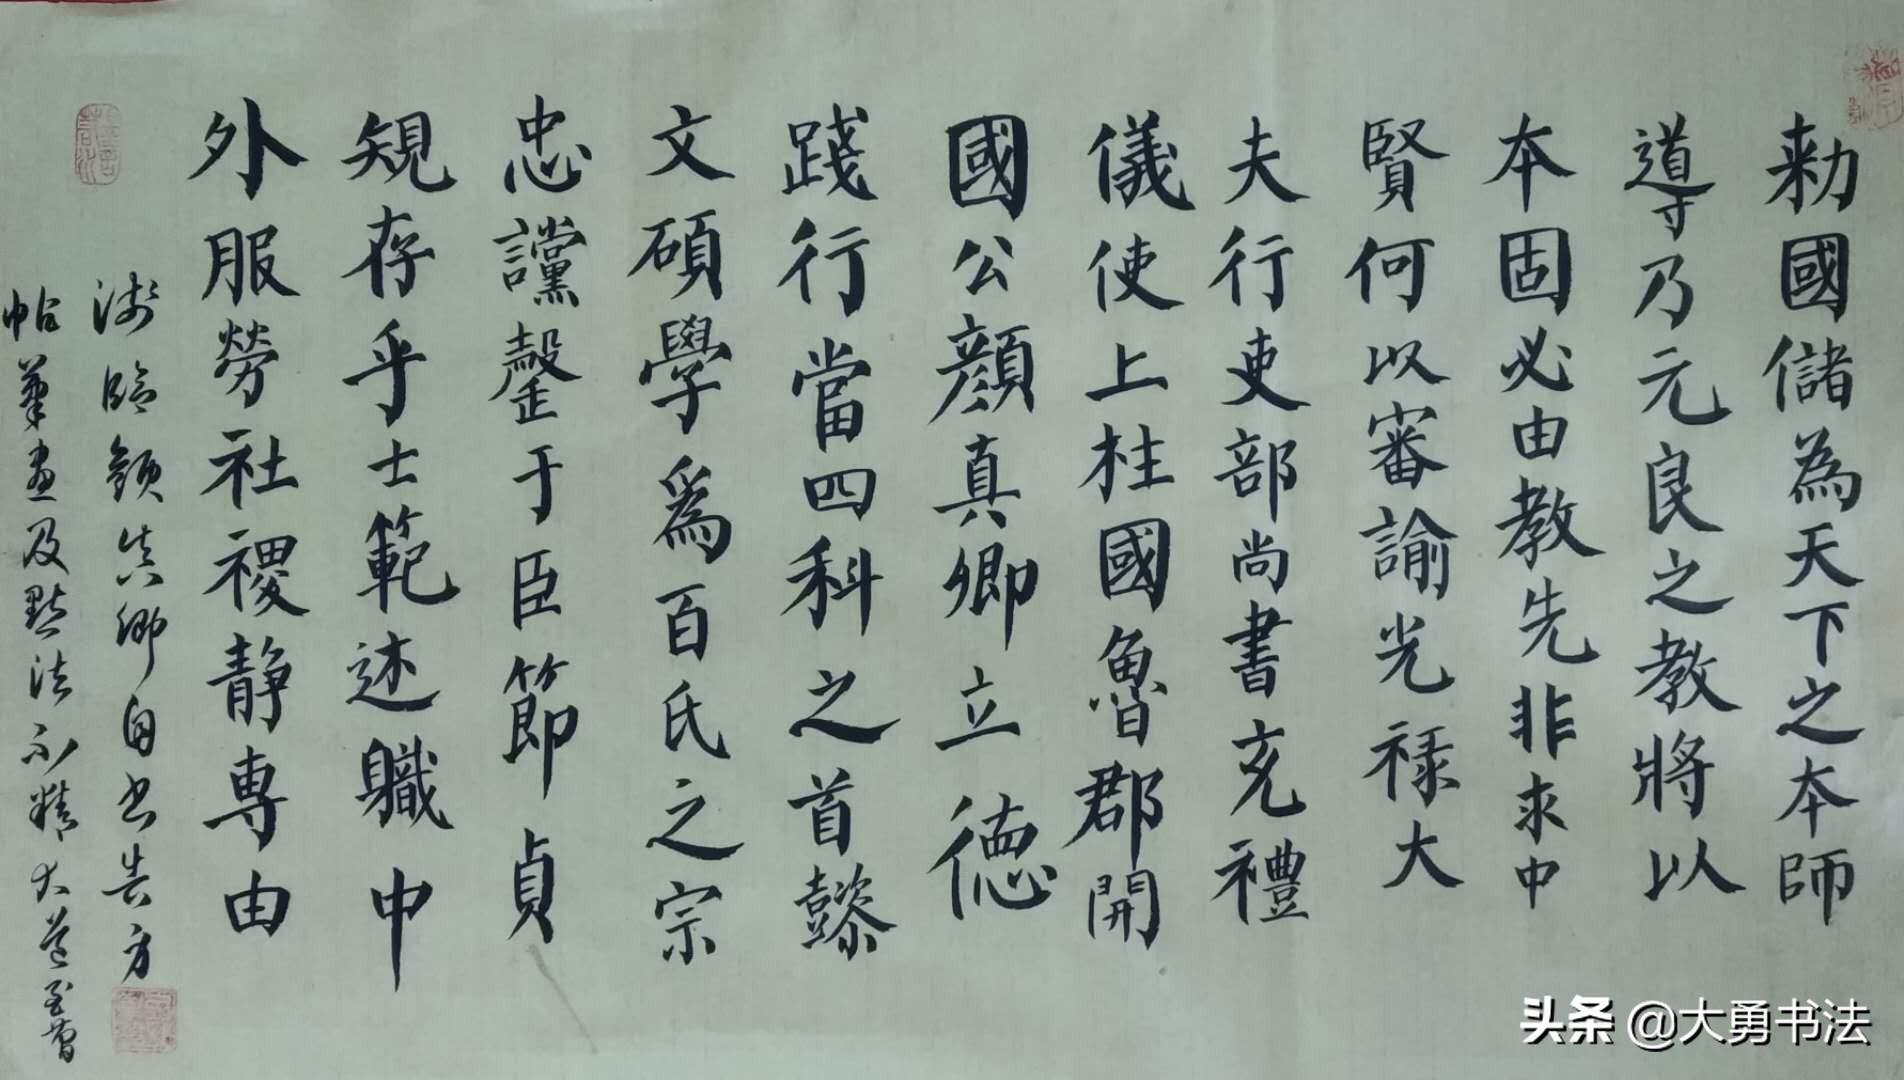 勅國儲為天下之本師
導乃元良之教將以
本固必由教先非求中
賢何以審諭光祿大
夫行吏部尚書充禮
儀使上柱國魯郡開
國公顏真卿立德
踐行當四科之首懿
文碩學為百氏之宗
忠讜罄于臣節貞
規存乎士範述職中
外服勞社稷靜專由
臨顏真卿自書告身
帖筆畫及點法不精大
头条 @大勇书法